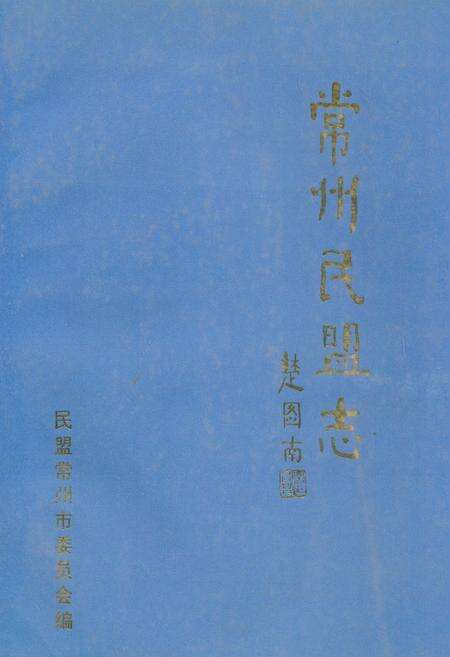 常州民盟志
楚图南
民盟常州市委员会编